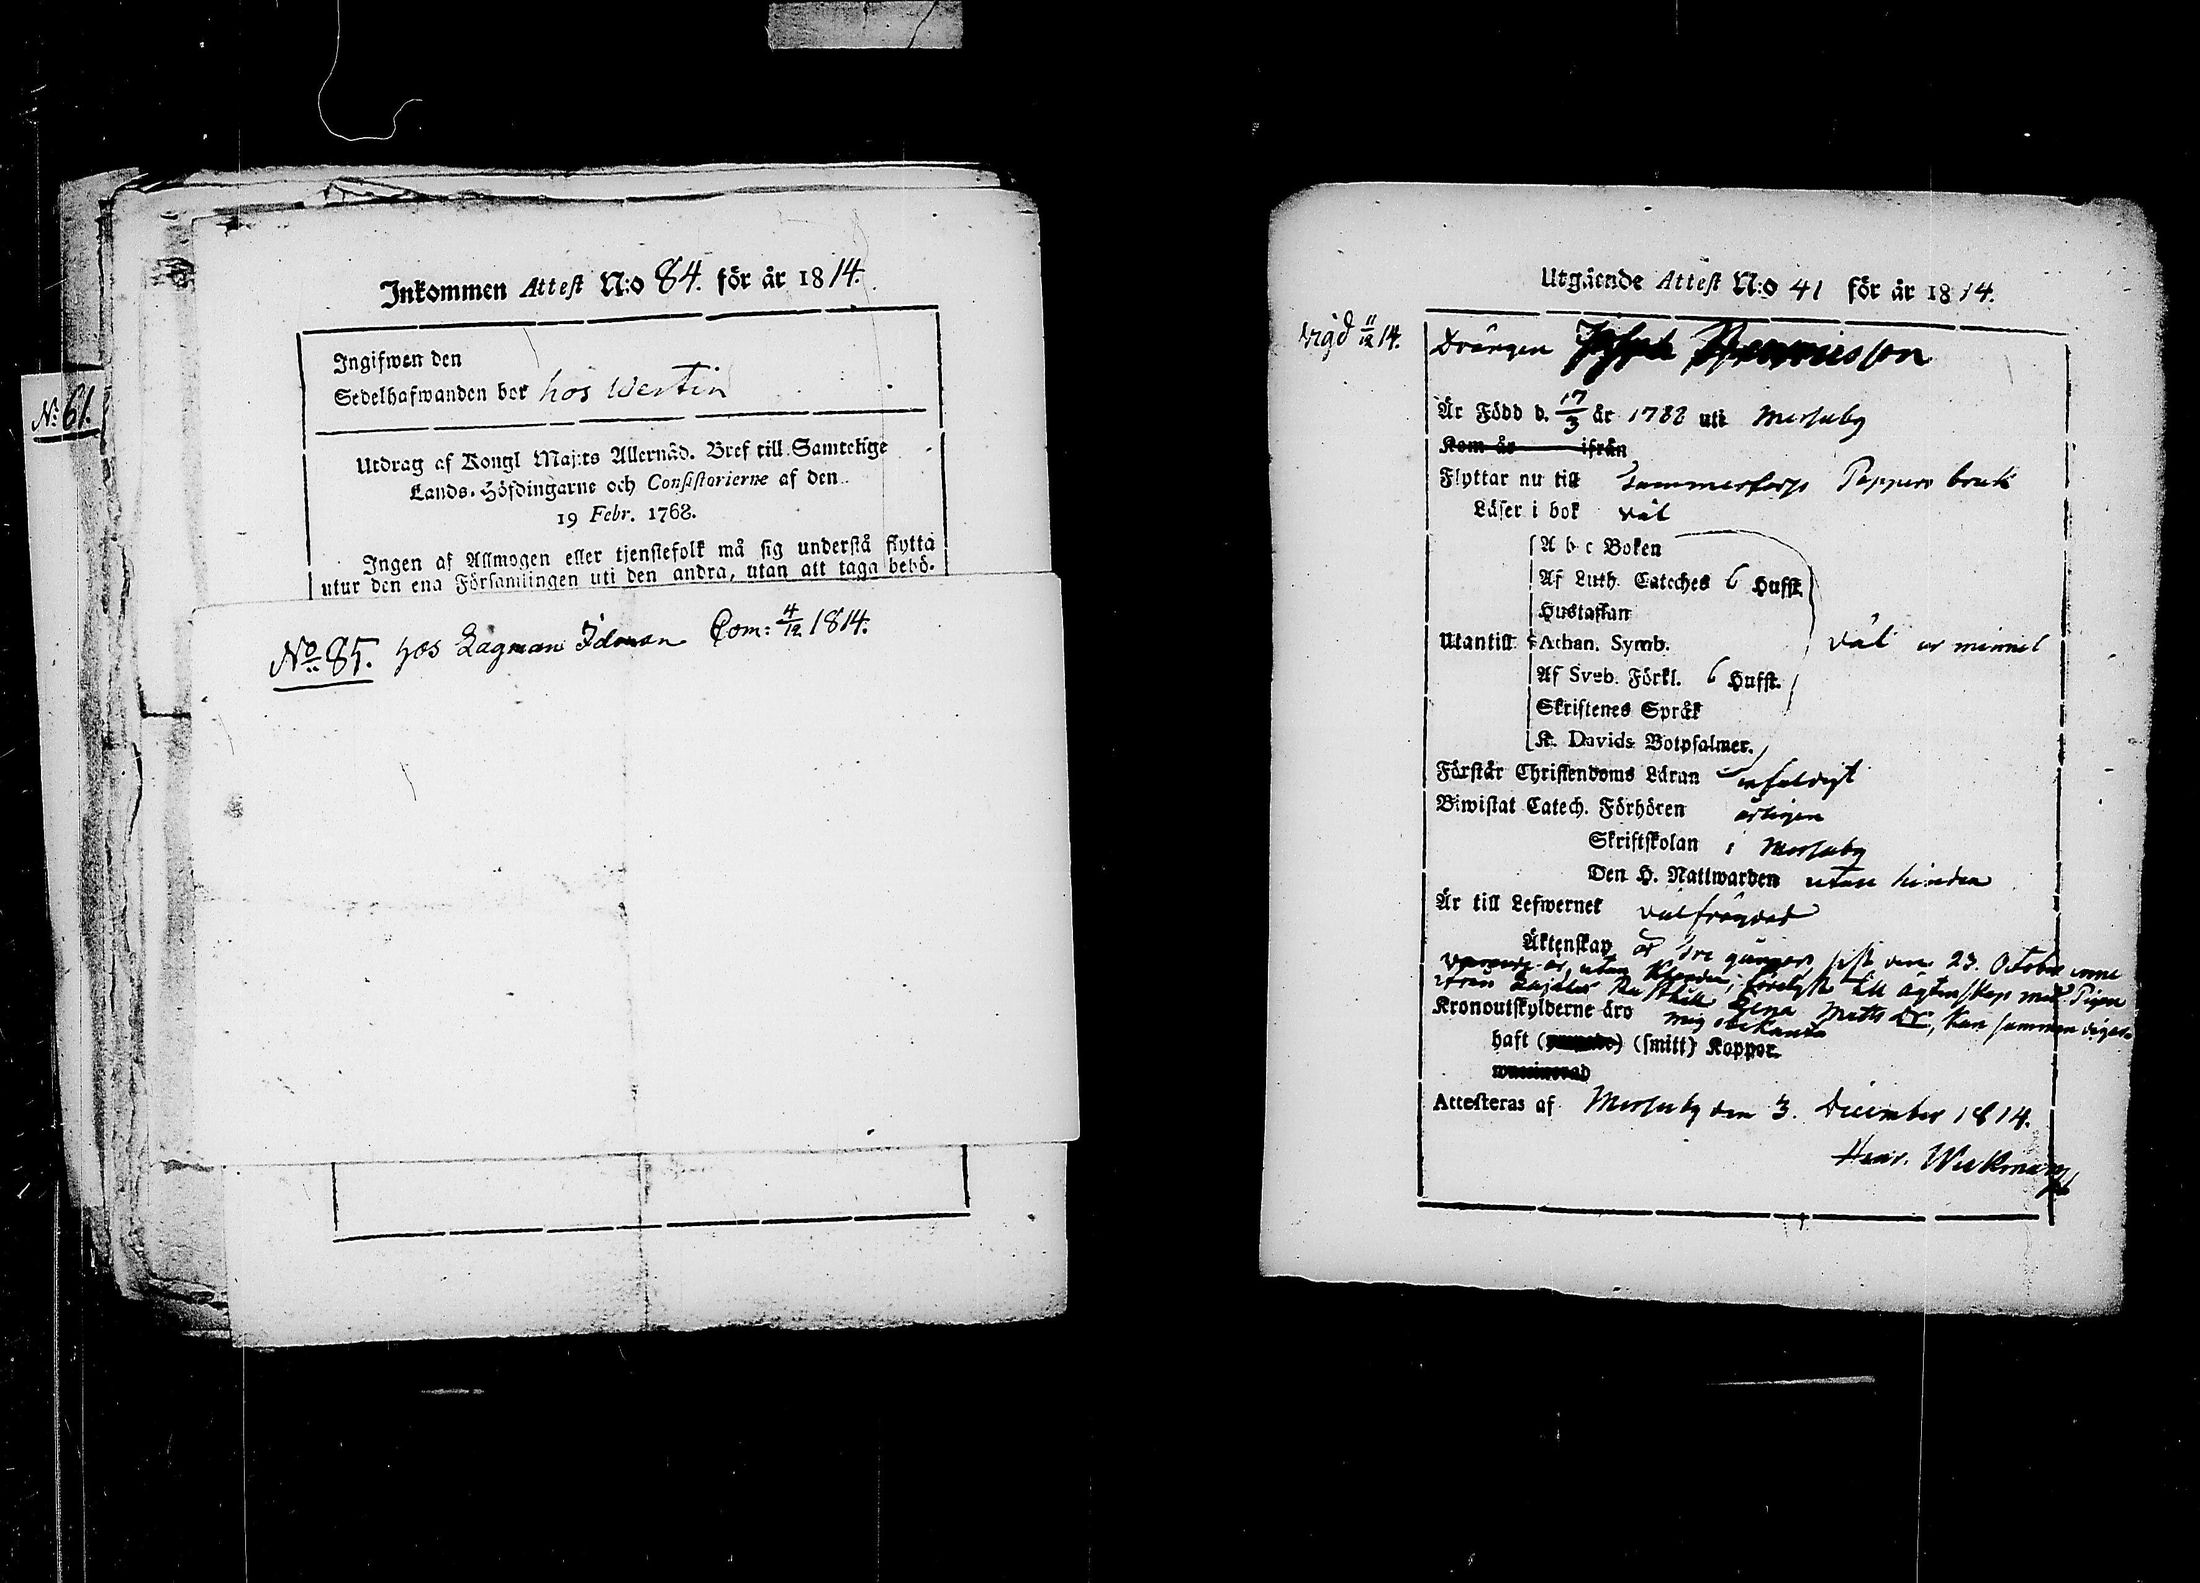 Inkommen Attest N:o 84. för år 1814.
Ingifwen den
Sedelhafwanden bor hos Wertin
Utdrag af Kongl Maj:ts Allernåd. Bref till Samtelige
Lands-Höfdingarne och Consistorierne af den
19 Febr. 1768.
Ingen af Allmogen eller tjenstefolk må sig understå flytta
utur den ena Församlingen uti den andra, utan att taga behö-
No 85. hos Lagman Idman Com: 4/12 1814.
No 61.
Utgående Attest N:o 41 för år 1814.
Vigd 11/12 14.
Drängen
Är Född d. 17/3 år 1788 uti
Kom år ifrån
Flyttar nu till Pappers bruk
Läser i bok väl
A b c Boken
Af Luth. Cateches 6 Hufst.
Hustaflan
Utantill Athan. Symb. väl ur minnet
Af Sveb. Förkl. 6 Hufst.
Skriftenes Språk
K. Davids Botpsalmer.
Förstår Christendoms Läran enfaldigt
Biwistat Catech. Förhören årligen
Skriftskolan i
Den H. Nattwarden utan hinder
Är till Lefwernet välfrägdad
Äktenskap är tre gånger sist den 23. October
utan Klander, till ägtenskap med Pigan
ifrån Lena Matts Dr, kan sammanvigas
Kronoutskylderne äro mig obekanta
haft (smitt) Koppor.
Attesteras af den 3. December 1814.
Henr. Wickman